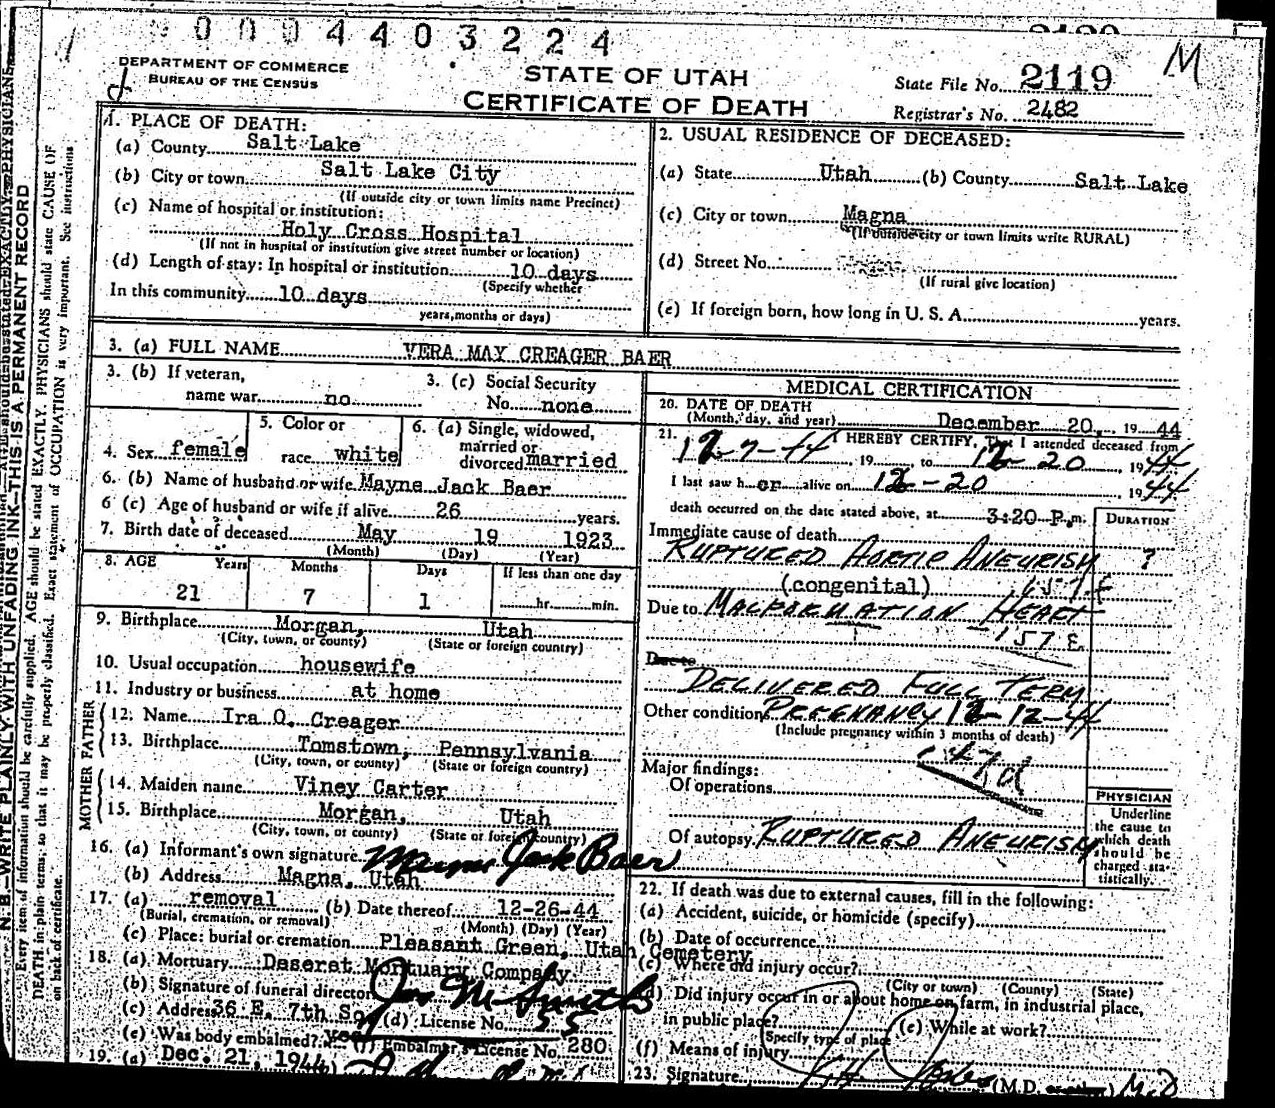 0004403224
DEPARTMENT OF COMMERCE
BUREAU OF THE CENSUS
STATE OF UTAH
CERTIFICATE OF DEATH
State File No. 2119
Registrar's No. 2482
M
N. B.—WRITE PLAINLY WITH UNFADING INK—THIS IS A PERMANENT RECORD
Every item of information should be carefully supplied. AGE should be stated EXACTLY. PHYSICIANS should state CAUSE OF
DEATH in plain terms, so that it may be properly classified. Exact statement of OCCUPATION is very important. See instructions
on back of certificate.
1. PLACE OF DEATH:
(a) County Salt Lake
(b) City or town Salt Lake City
(If outside city or town limits name Precinct)
(c) Name of hospital or institution:
Holy Cross Hospital
(If not in hospital or institution give street number or location)
(d) Length of stay: In hospital or institution 10 days
(Specify whether
In this community 10 days
years, months or days)
2. USUAL RESIDENCE OF DECEASED:
(a) State Utah (b) County Salt Lake
(c) City or town Magna
(If outside city or town limits write RURAL)
(d) Street No.
(If rural give location)
(e) If foreign born, how long in U. S. A. years.
3. (a) FULL NAME VERA MAY CREAGER BAER
3. (b) If veteran,
name war no
3. (c) Social Security
No. none
4. Sex female
5. Color or
race white
6. (a) Single, widowed,
married or
divorced married
6. (b) Name of husband or wife Mayne Jack Baer
6 (c) Age of husband or wife if alive 26 years.
7. Birth date of deceased May 19 1923
(Month) (Day) (Year)
8. AGE Years Months Days If less than one day
21 7 1 hr. min.
9. Birthplace Morgan, Utah
(City, town, or county) (State or foreign country)
10. Usual occupation housewife
11. Industry or business at home
FATHER
12. Name Ira O. Creager
13. Birthplace Tomstown, Pennsylvania
(City, town, or county) (State or foreign country)
MOTHER
14. Maiden name Viney Carter
15. Birthplace Morgan, Utah
(City, town, or county) (State or foreign country)
16. (a) Informant's own signature Mayne Jack Baer
(b) Address Magna, Utah
17. (a) removal (b) Date thereof 12-26-44
(Burial, cremation, or removal) (Month) (Day) (Year)
(c) Place: burial or cremation Pleasant Green, Utah Cemetery
18. (a) Mortuary Deseret Mortuary Company
(b) Signature of funeral director Jos M Smith
(c) Address 36 E. 7th So. (d) License No. 55
(e) Was body embalmed? yes (f) Embalmer's License No. 280
19. (a) Dec. 21, 1944
MEDICAL CERTIFICATION
20. DATE OF DEATH
(Month, day, and year) December 20, 19 44
21. I HEREBY CERTIFY, That I attended deceased from
12-7-44, 19 to 12-20, 1944
I last saw her alive on 12-20 1944
death occurred on the date stated above, at 3:20 P.m.
DURATION
Immediate cause of death
RUPTURED AORTIC ANEURISM ?
(congenital) 157 E
Due to MALFORMATION HEART
-157 E
Due to
DELIVERED FULL TERM
Other conditions PREGNANCY 12-12-44
(Include pregnancy within 3 months of death)
Major findings:
Of operations
Of autopsy RUPTURED ANEURISM
PHYSICIAN
Underline
the cause to
which death
should be
charged sta-
tistically.
22. If death was due to external causes, fill in the following:
(a) Accident, suicide, or homicide (specify)
(b) Date of occurrence
(c) Where did injury occur?
(City or town) (County) (State)
(d) Did injury occur in or about home on farm, in industrial place,
in public place? (e) While at work?
(Specify type of place
(f) Means of injury
23. Signature (M.D. M.D.